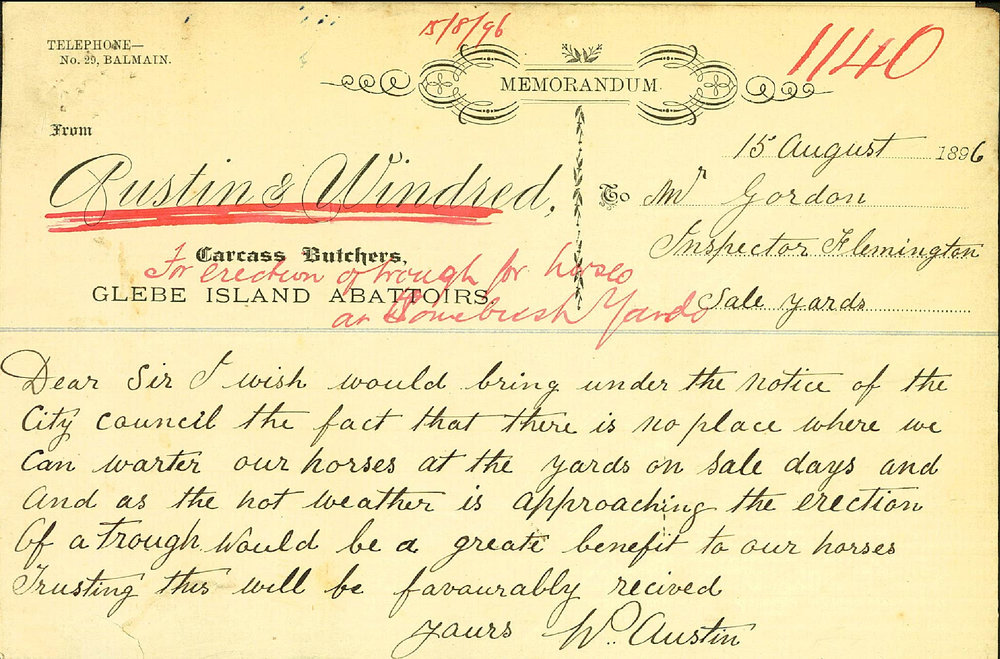 15/8/96
1140
TELEPHONE—
No. 29, BALMAIN.
MEMORANDUM.
From
15 August 1896
Austin & Windred,
To Mr Gordon
Inspector Flemington
Sale yards
Carcass Butchers,
For erection of trough for horses
GLEBE ISLAND ABATTOIRS
at Homebush Yards
Dear Sir I wish would bring under the notice of the
City council the fact that there is no place where we
Can warter our horses at the yards on sale days and
And as the hot weather is approaching the erection
Of a trough would be a greate benefit to our horses
Trusting this will be favourably recived
yours Wm. Austin